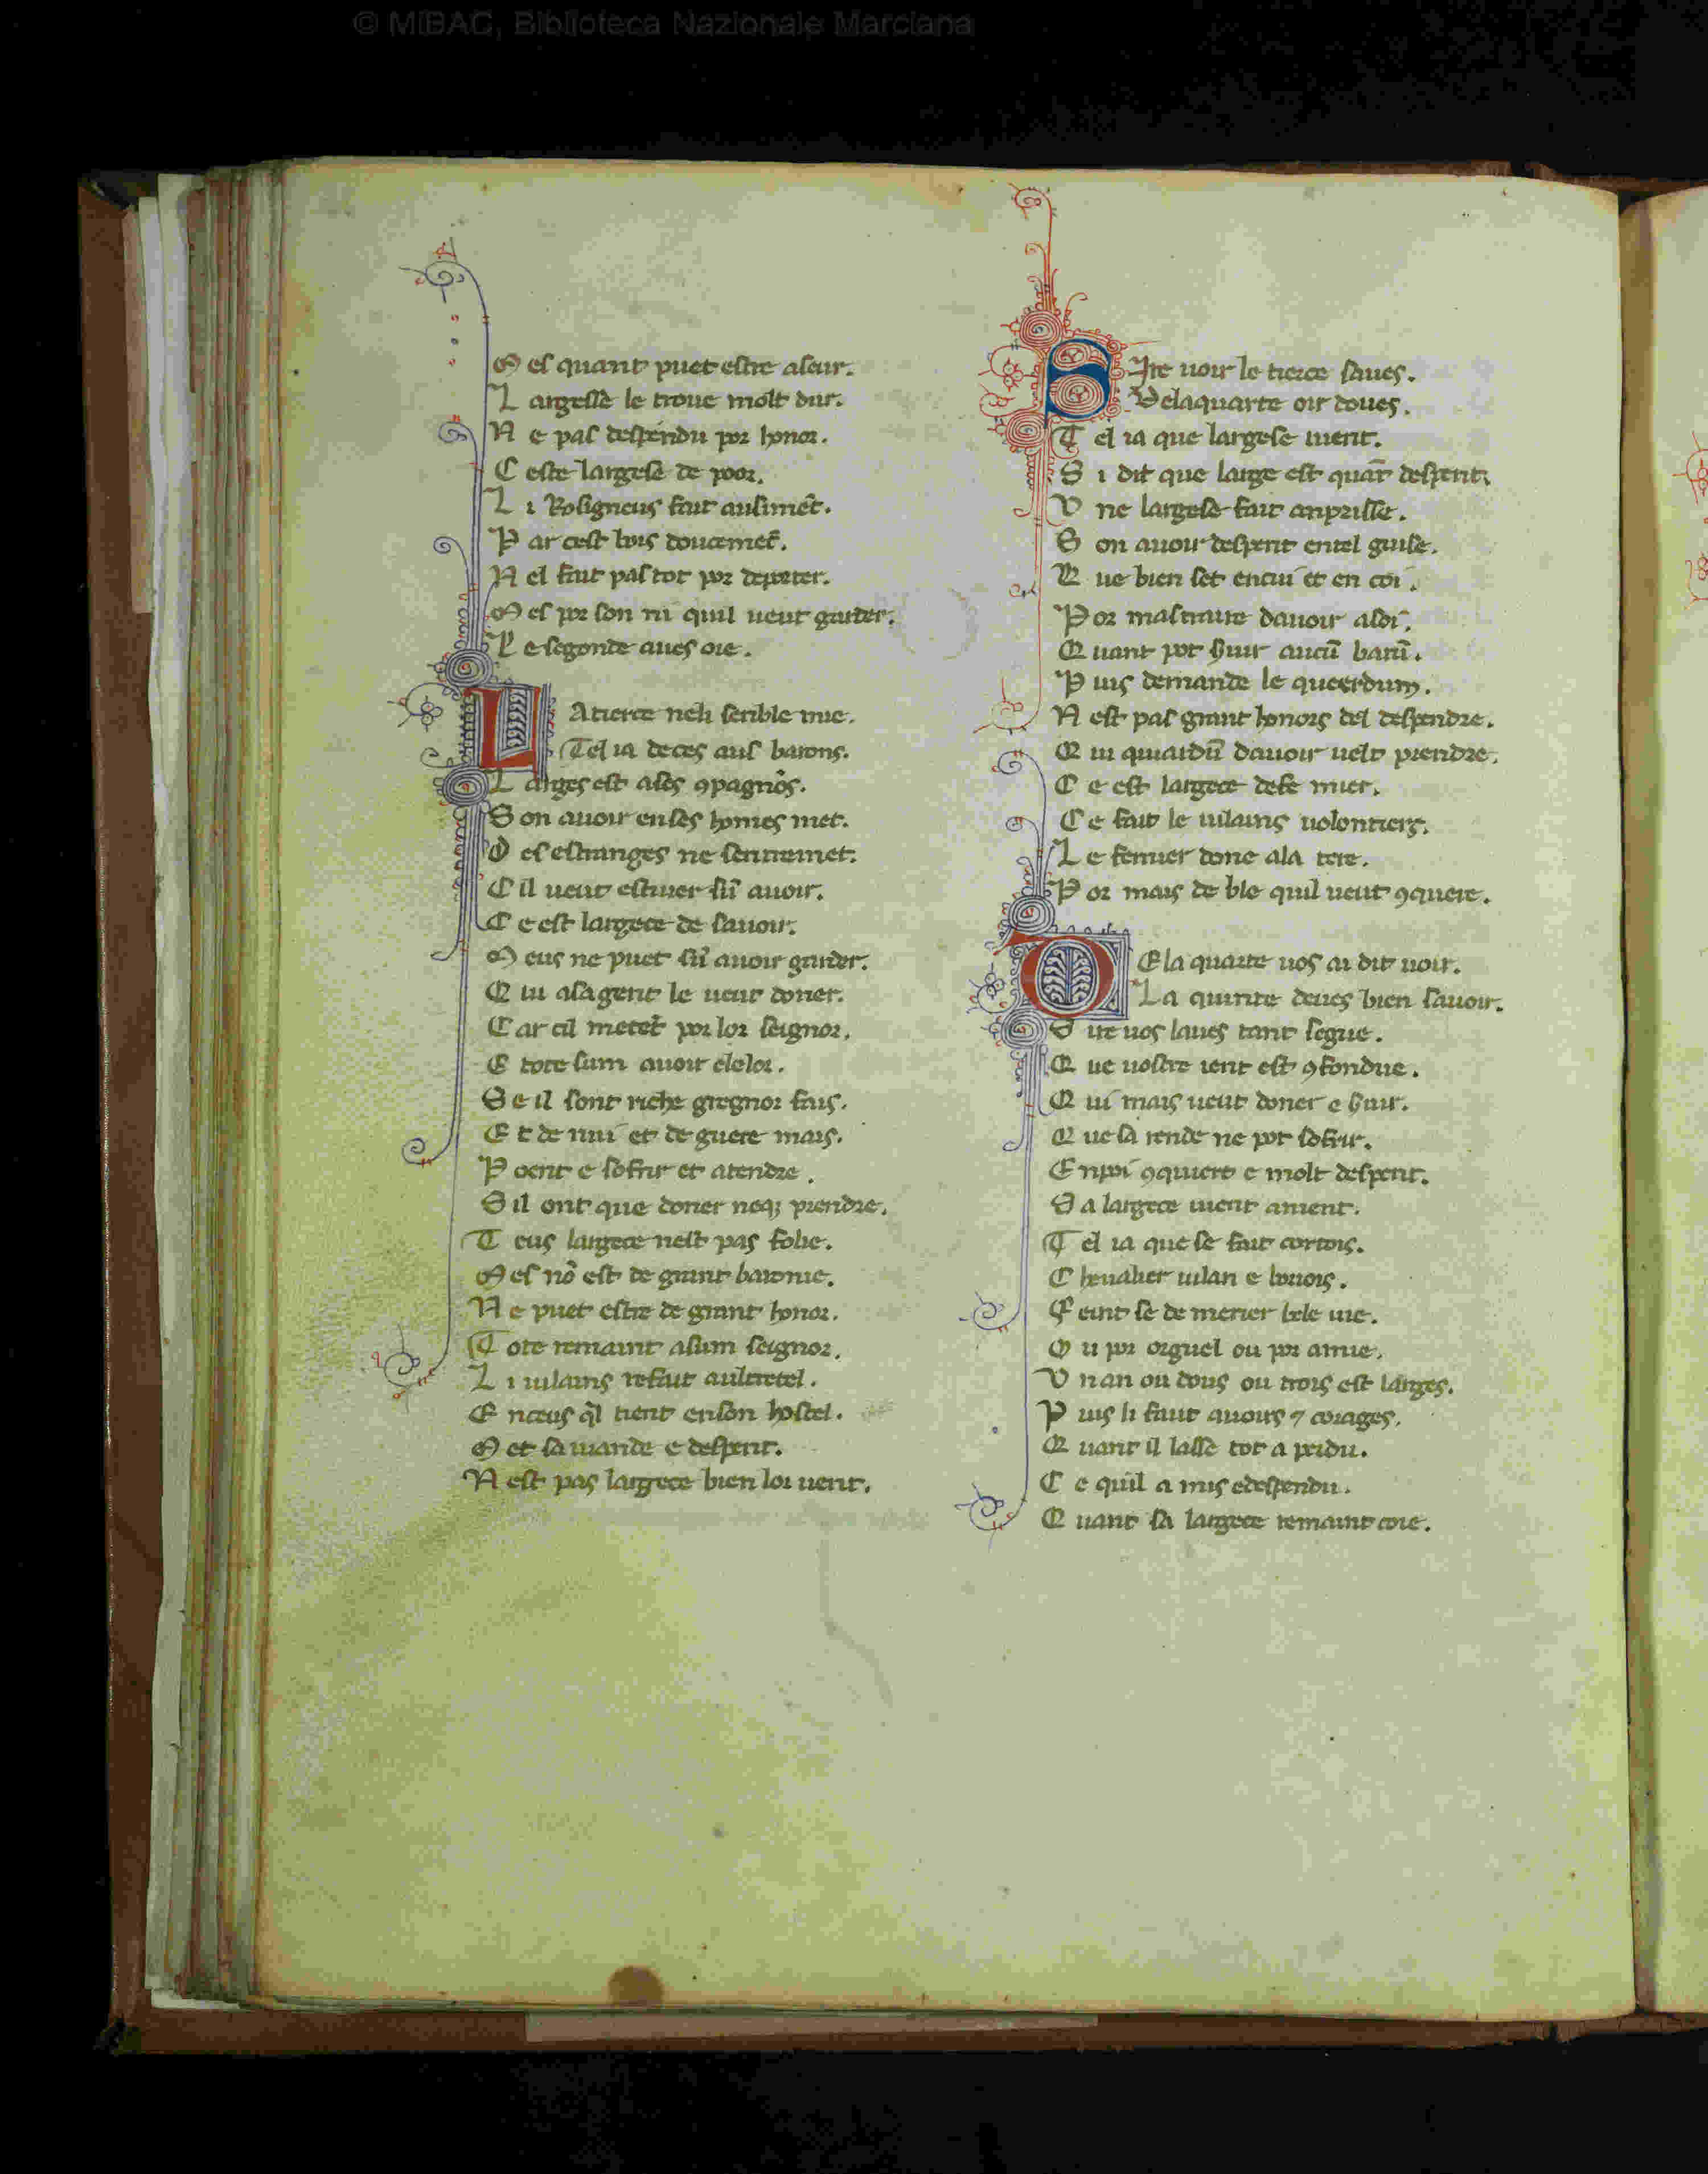 © MiBAC, Biblioteca Nazionale Marciana
M es quant puet estre aseur.
L argesse le troue molt dur.
N e pas despendu por honor.
C este largese de poor.
L i Rosigneus fait ausimẽt.
P ar cest bois doucemet̃.
N el fait pas tot por deporter.
M es por son ni quil ueut garder.
L e segonde aues oie.
L Atierce neli senble mie.
Tel ia deces aus barons.
L arges est ases ꝯpagnõs.
S on auoir enses homes met.
D es estranges ne sentremet.
C il ueut estiuer sũ auoir.
C e est largece de sauoir.
M eus ne puet sũ auoir garder.
Q ui asagent le ueut doner.
C ar cil metet̃ por lor seignor.
E tote sum auoir elelor.
S e il sont riche gregnor fais.
E t de nui et de guere mais.
P oent e sofrir et atendre.
S il ont que doner neqꝫ prendre.
T eus largece nest pas folie.
M es nõ est de grant baronie.
N e puet estre de grant honor.
T ote remaint asum seignor.
L i uilains refait aultretel.
E nceus q̃l tient enson hostel.
M et sa uiande e despent.
N est pas largece bien loi uent.
S Ire uoir le tierce saues.
Delaquarte oir doues.
T el ia que largese uient.
S i dit que large est quãt despent.
U ne largese fait anprisse.
S on auoir despent entel guise.
Q ue bien set encui et en coi.
P or mastraire dauoir asoi.
Q uant pot s̃uir aucũ barũ.
P uis demande le queerdum.
N est pas grant honors del despendre.
Q ui quiardũ dauoir uelt prendre.
C e est largece defe nuer.
C e fait le uilains uolontiers.
L e femier done ala tere.
P or mais de ble quil ueut ꝯquere.
D Ela quarte uos ai dit uoir.
La quinte deues bien sauoir.
S ire uos laues tant segue.
Q ue uostre ient est ꝯfondue.
Q ui mais ueut doner e s̃uir.
Q ue sa rende ne pot sofrir.
E npoi ꝯquiert e molt despent.
S a largece uient anient.
T el ia que se fait cortois.
C heualier uilan e boriois.
F eint se de mener bele uie.
O u por orguel ou por amie.
U n an ou dous ou trois est larges.
P uis li faut auoirs ⁊ corages.
Q uant il lasse tot a perdu.
C e quil a mis edespendu.
Q uant sa largece remaint coie.